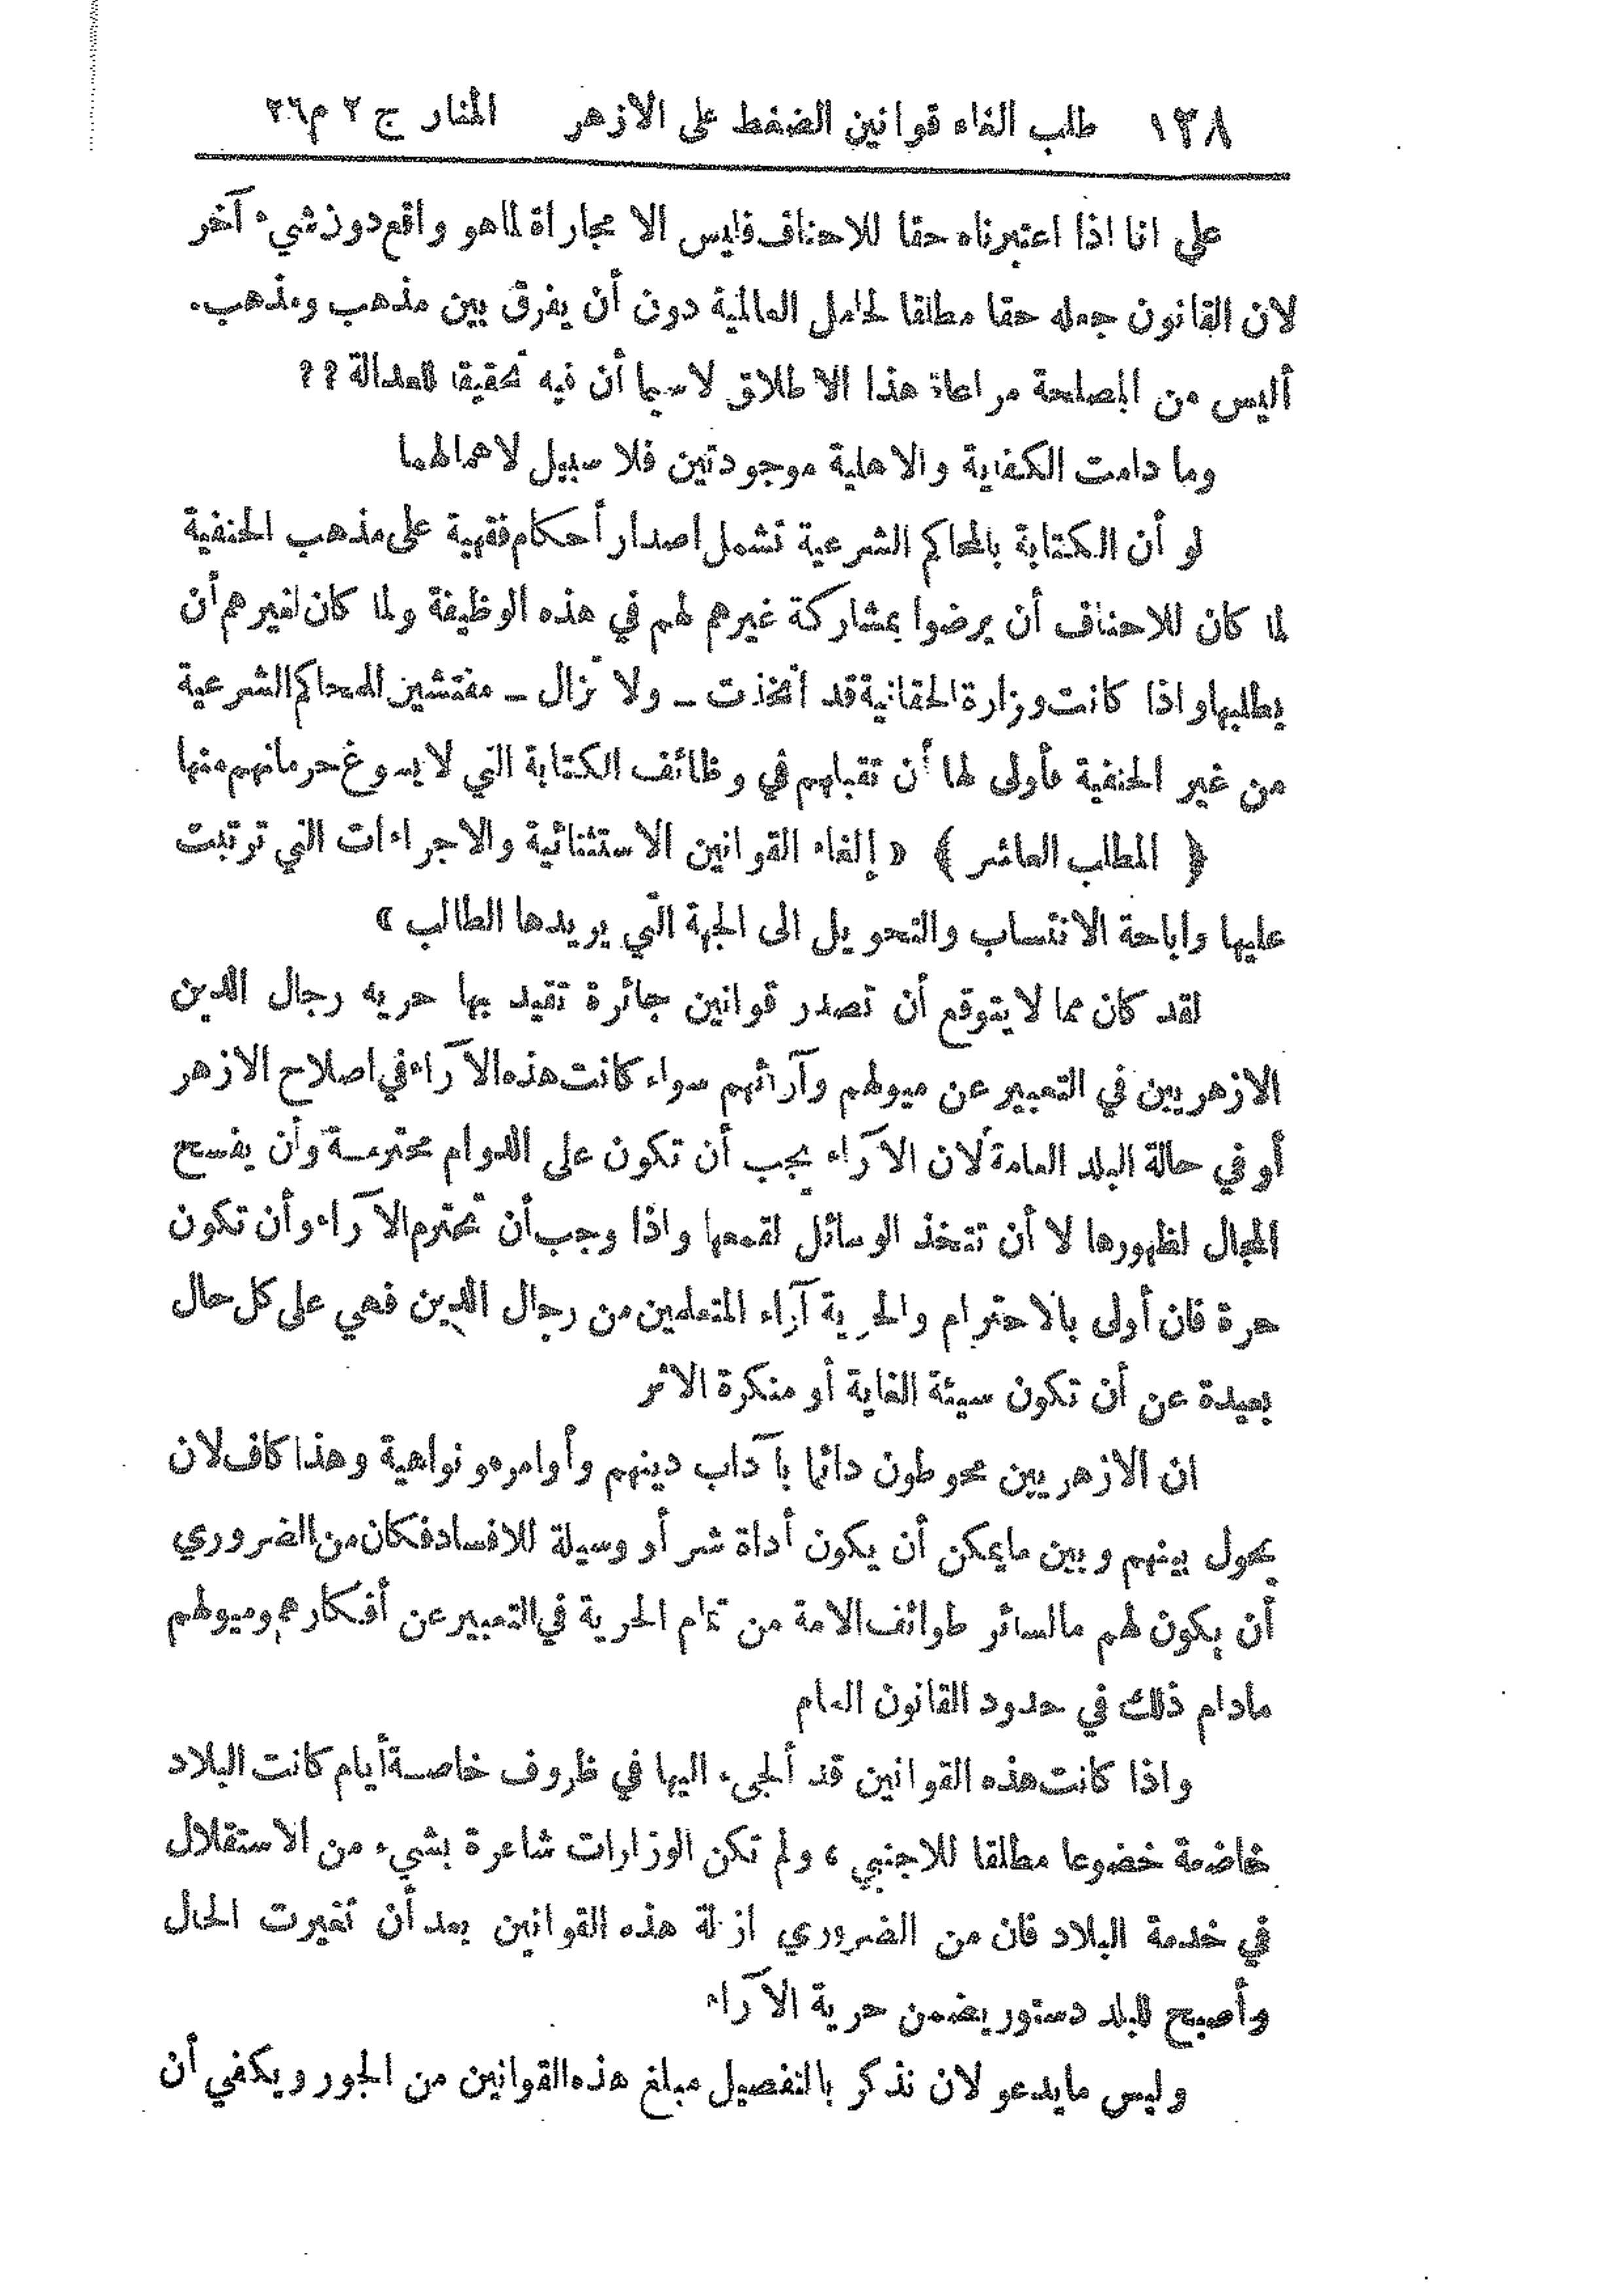 ١٣٨ طلب الغاء قوانين الضغط على الازهر المنار ج ٢ م ٢٦
على انا اذا اعتبرناه حقا للاحناف فليس الا مجاراة لما هو واقع دون شيء آخر
لان القانون جعله حقا مطلقا لحامل العالمية دون أن يفرق بين مذهب ومذهب.
أليس من المصلحة مراعاة هذا الاطلاق لاسيما أن فيه تحقيقا للعدالة ؟؟
وما دامت الكفاية والاهلية موجودتين فلا سبيل لاهمالهما
لو أن الكتابة بالمحاكم الشرعية تشمل اصدار أحكام فقهية على مذهب الحنفية
لما كان للاحناف أن يرضوا بمشاركة غيرهم لهم في هذه الوظيفة ولما كان لغيرهم أن
يطلبها واذا كانت وزارة الحقانية قد اتخذت ــ ولا تزال ــ مفتشين للمحاكم الشرعية
من غير الحنفية فأولى لها أن تقبلهم في وظائف الكتابة التي لا يسوغ حرمانهم منها
﴿ المطلب العاشر ﴾ « إلغاء القوانين الاستثنائية والاجراءات التي ترتبت
عليها واباحة الانتساب والتحويل الى الجهة التي يريدها الطالب »
لقد كان مما لا يتوقع أن تصدر قوانين جائرة تقيد بها حريه رجال الدين
الازهريين في التعبير عن ميولهم وآرائهم سواء كانت هذه الآراء في اصلاح الازهر
أو في حالة البلد العامة لان الآراء يجب أن تكون على الدوام محترمة وأن يفسح
المجال لظهورها لا أن تتخذ الوسائل لقمعها واذا وجب أن تحترم الآراء وأن تكون
حرة فان أولى بالاحترام والحرية آراء المتعلمين من رجال الدين فهي على كل حال
بعيدة عن أن تكون سيئة الغاية أو منكرة الاثر
ان الازهريين محوطون دائما بآداب دينهم وأوامره ونواهية وهذا كاف لان
يحول بينهم وبين ما يمكن أن يكون أداة شر أو وسيلة للافساد فكان من الضروري
أن يكون لهم مالسائر طوائف الامة من تمام الحرية في التعبير عن أفكارهم وميولهم
مادام ذلك في حدود القانون العام
واذا كانت هذه القوانين قد ألجىء اليها في ظروف خاصة أيام كانت البلاد
خاضعة خضوعا مطلقا للاجنبي ، ولم تكن الوزارات شاعرة بشيء من الاستقلال
في خدمة البلاد فان من الضروري ازالة هذه القوانين بعد أن تغيرت الحال
وأصبح للبلد دستور يضمن حرية الآراء
وليس مايدعو لان نذكر بالتفصيل مبلغ هذه القوانين من الجور ويكفي أن